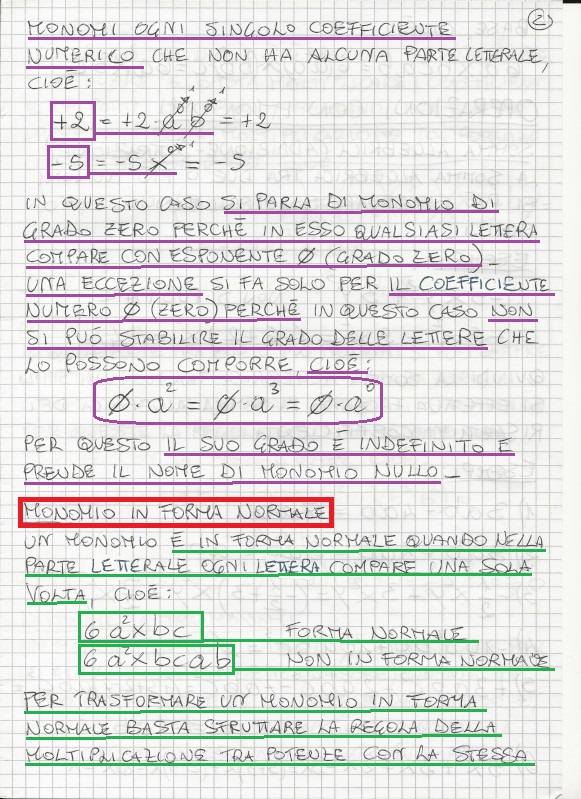 2
MONOMI OGNI SINGOLO COEFFICIENTE
NUMERICO CHE NON HA ALCUNA PARTE LETTERALE,
CIOÈ:
+2 = +2·a⁰b⁰ = +2
-5 = -5x⁰ = -5
IN QUESTO CASO SI PARLA DI MONOMIO DI
GRADO ZERO PERCHÈ IN ESSO QUALSIASI LETTERA
COMPARE CON ESPONENTE 0 (GRADO ZERO)_
UNA ECCEZIONE SI FA SOLO PER IL COEFFICIENTE
NUMERO 0 (ZERO) PERCHÈ IN QUESTO CASO NON
SI PUÓ STABILIRE IL GRADO DELLE LETTERE CHE
LO POSSONO COMPORRE, CIOÈ:
0·a² = 0·a³ = 0·a⁰
PER QUESTO IL SUO GRADO È INDEFINITO E
PRENDE IL NOME DI MONOMIO NULLO_
MONOMIO IN FORMA NORMALE
UN MONOMIO È IN FORMA NORMALE QUANDO NELLA
PARTE LETTERALE OGNI LETTERA COMPARE UNA SOLA
VOLTA, CIOÈ:
6a²xbc FORMA NORMALE
6a²xbcab NON IN FORMA NORMALE
PER TRASFORMARE UN MONOMIO IN FORMA
NORMALE BASTA SFRUTTARE LA REGOLA DELLA
MOLTIPLICAZIONE TRA POTENZE CON LA STESSA